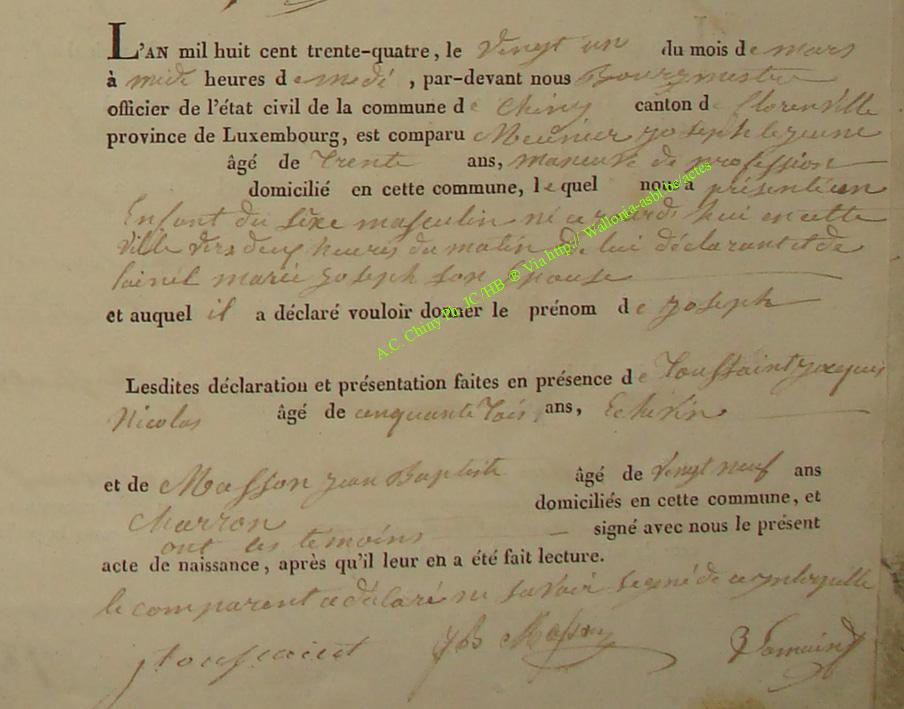 L'AN mil huit cent trente-quatre, le vingt un du mois de mars
à midi heures de medi, par-devant nous Bourgmestre
officier de l'état civil de la commune de Chiny canton de florenville
province de Luxembourg, est comparu Meunier joseph lejeune
âgé de trente ans, maneuvre de profession
domicilié en cette commune, lequel nous a présenté un
Enfant du sèxe masculin né aujourd'hui en cette
ville vers deux heures du matin de lui déclarant et de
marie joseph son Epouse
et auquel il a déclaré vouloir donner le prénom de joseph
Lesdites déclaration et présentation faites en présence de Toussaint jacques
Nicolas âgé de cinquante trois ans, Echevin
et de Masson jean Baptiste âgé de vingt neuf ans
charron domiciliés en cette commune, et
ont les témoins signé avec nous le présent
acte de naissance, après qu'il leur en a été fait lecture.
le comparent a déclaré ne savoir signé de ce
jtoussaint JB Masson
A.C. Chiny Ph. IC /HB ® Via http:// Wallonia-asbl.be/actes